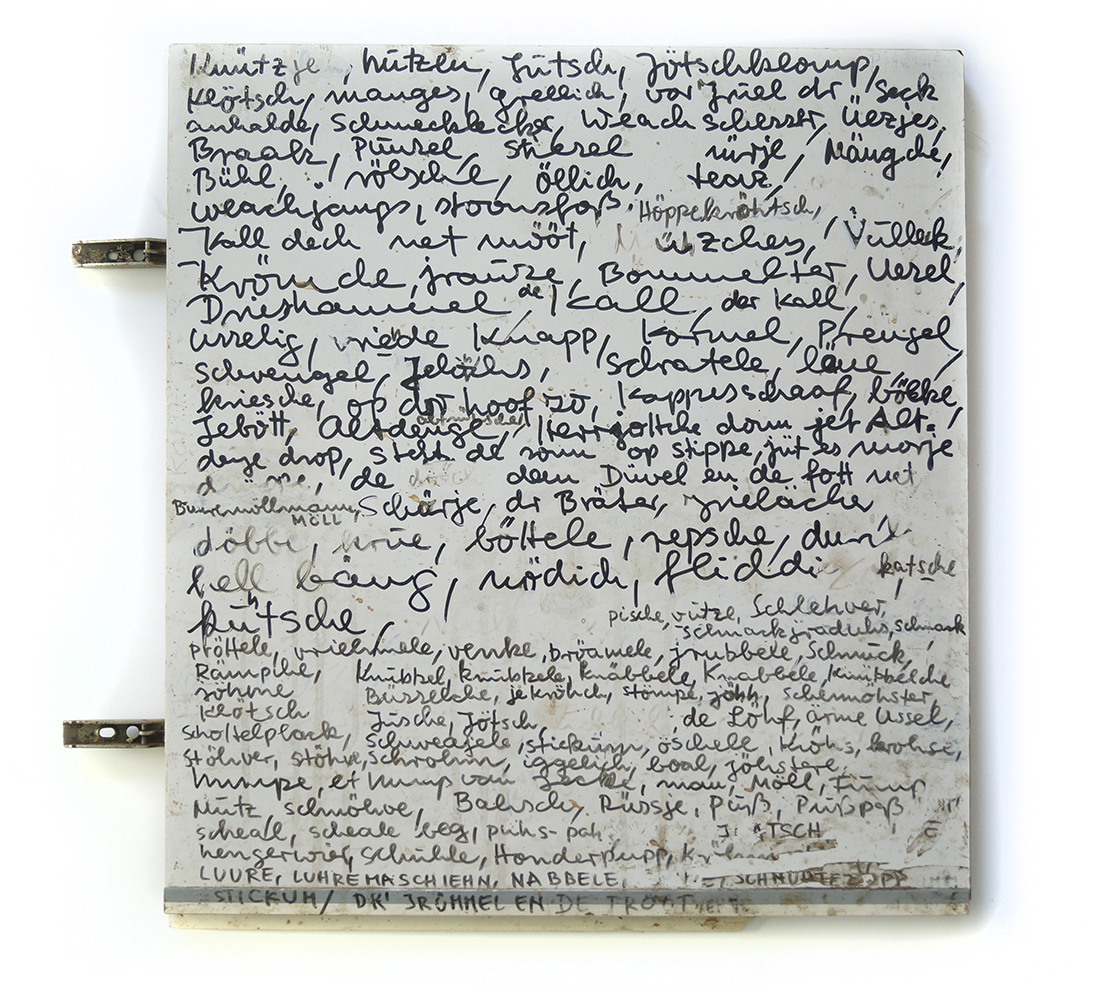 hützen, Jütsch, Jötschklomp,
Klötsch, manges, grellich, vor Jüel dr Seck
anhalde, Schmecklecker, Weach scherrer, Üezjes,
Braatz, Püürel, Stiesel nürje, Mängche,
Bühl, rölsche, öllich, teaz,
weachjangs, stoonsfoß, Höppekröhtsch,
Kall dech net mööt, Vulleck,
Krömche, jrauze, Bommelter, Uesel,
Drieshammel, de Kall, der Kall,
usselig, Knapp, Kormel, Prengel,
Schwengel, Schratele, läue,
kriesche, op dr hoof zo, Kappesschaaf, bölke,
Jebött, Altdenge, Herrjottche donn jet Alt-
denge drop, Steht de sonn op stippe, jüt es morje
de dem Düvel en de fott net
Buuremöllmann, MÖLL Schürje, dr Bräter, grieläche
döbbe, krue, böttele, repsche,
hell bäng, nödich, fliddi katsche
kütsche, pische, rütze, Schlehver,
schmackjraduhs, schmack
pröttele, vriehmele, venke, bröamele, jrubbele, Schmück,
Rämpche, Knubbel, knubbele, knäbbele, Knabbele, knübbelche
söhme Büsselche, jekröhch, stömpe, jöhh, schermöhster,
Klötsch Jüsche, Jötsch, de Löhf, ärme Ussel,
Schottelplack, Schweajele, stickum, öschele, Kröhs, krohse,
Stöhver, stöhve, Schrohm, iggelich, boal, jöhstere,
Mumpe, et Mump van Jecke, mau, Möll, Fimp
Mutz, schnöhve, Balisch, Rüssje, Püß, Püßpaß
scheal, scheale beg, puhs-pah,
hengerwier, schühle, Honderpupp,
LUURE, LUHREMASCHIEHN, NABBELE,
STICKUM/ DR' JRÖMMEL EN DE TROOT